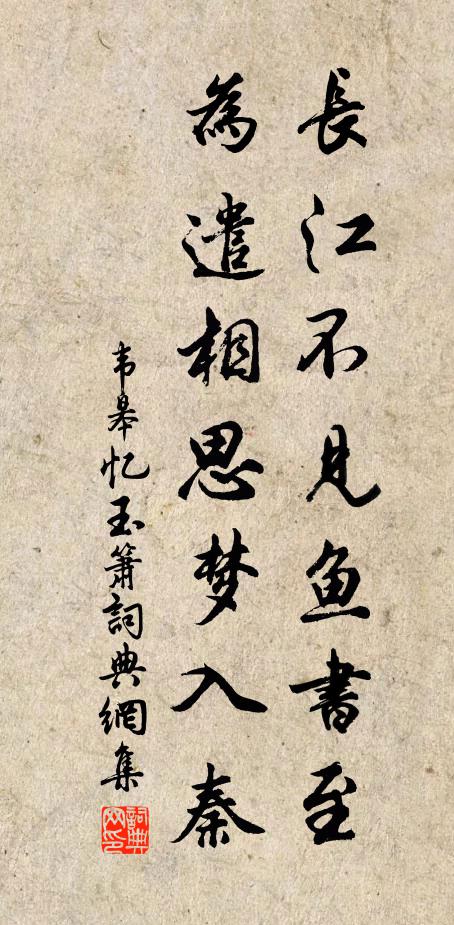 長江不見鱼書至
為遣相思梦入秦
韦皋忆玉箫詞典網集
詞典网印